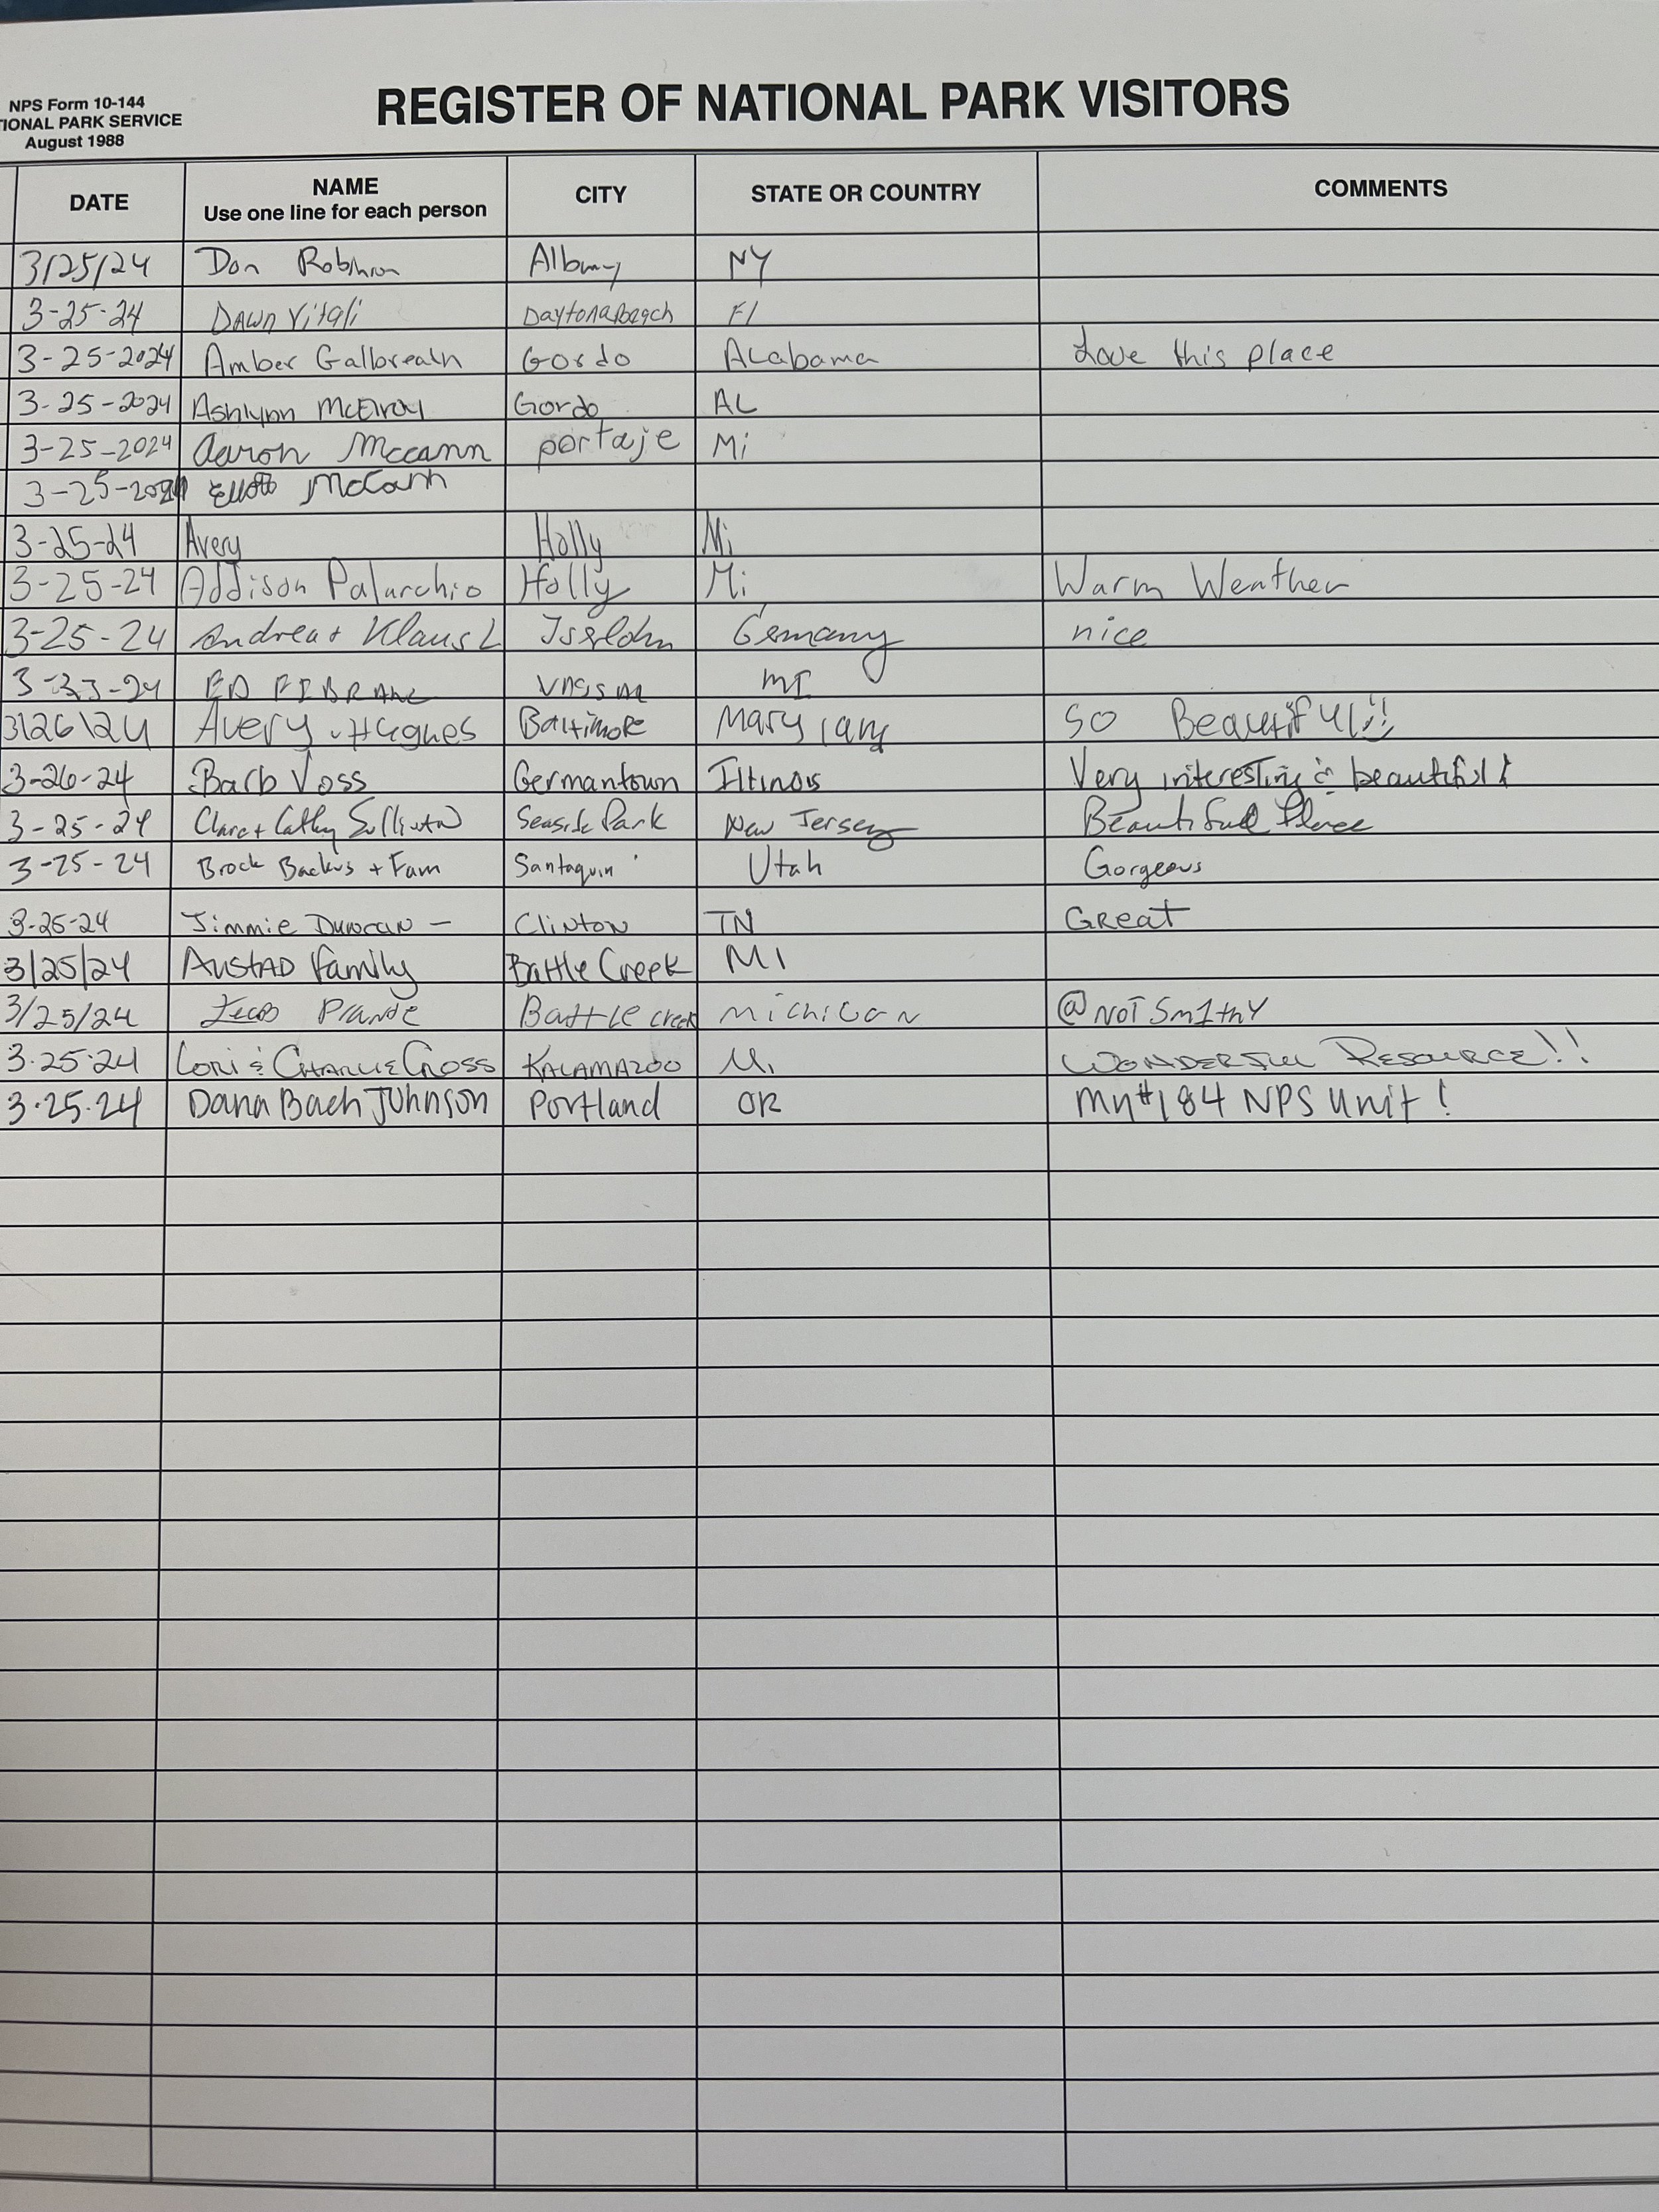 NPS Form 10-144
TIONAL PARK SERVICE
August 1988
REGISTER OF NATIONAL PARK VISITORS
DATE NAME CITY STATE OR COUNTRY COMMENTS
Use one line for each person
3/25/24 Don Robinson Albany NY
3-25-24 DAWN Vitali Daytona Beach Fl
3-25-2024 Amber Galbreath Gordo ALabama Love this place
3-25-2024 Ashlynn McElroy Gordo AL
3-25-2024 Aaron Mccann portaje Mi
3-25-2024 McCann
3-25-24 Avery Holly Mi
3-25-24 Addison Palarchio Holly Mi Warm Weather
3-25-24 Andrea + Klaus L Germany nice
3-23-24 ED VASSAR MI
3/26/24 Avery Hughes Baltimore Maryland SO Beautiful!!
3-26-24 Barb Voss Germantown Illinois Very interesting & beautiful!
3-25-24 Clare + Cathy Sullivan Seaside Park New Jersey Beautiful Place
3-25-24 Brock Backus + Fam Santaquin Utah Gorgeous
3-25-24 Jimmie Duncan - Clinton TN GReat
3/25/24 AUSTAD Family Battle Creek MI
3/25/24 Battle creek michigan @NOTSm1thY
3.25.24 Lori & CHARLIE CROSS KALAMAZOO MI WONDERFUL RESOURCE!!
3.25.24 Dana Bach Johnson Portland OR my #184 NPS unit!